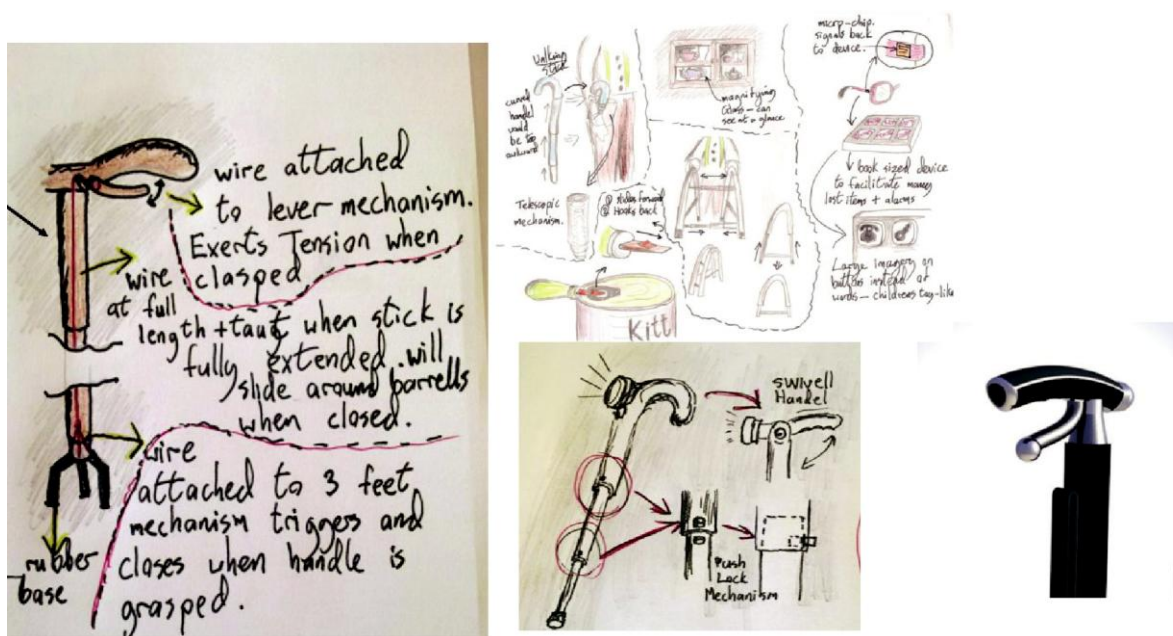 wire attached
to lever mechanism.
Exerts Tension when
clasped
wire
at full
length + taut when stick is
fully extended. will
slide around barrells
when closed.
wire
attached to 3 feet
mechanism triggers and
closes when handle is
grasped.
rubber
base
Walking
stick
curved
handel
would
be too
awkward
Telescopic
mechanism.
magnifying
Glass - can
see at a glance
① slides forward
② Hooks back
Kitt
micro-chip.
signals back
to device.
book sized device
to facilitate many
lost items + alarms
Large Imagery on
buttons instead of
words - childrens toy-like
Swivell
Handel
Push
Lock
Mechanism